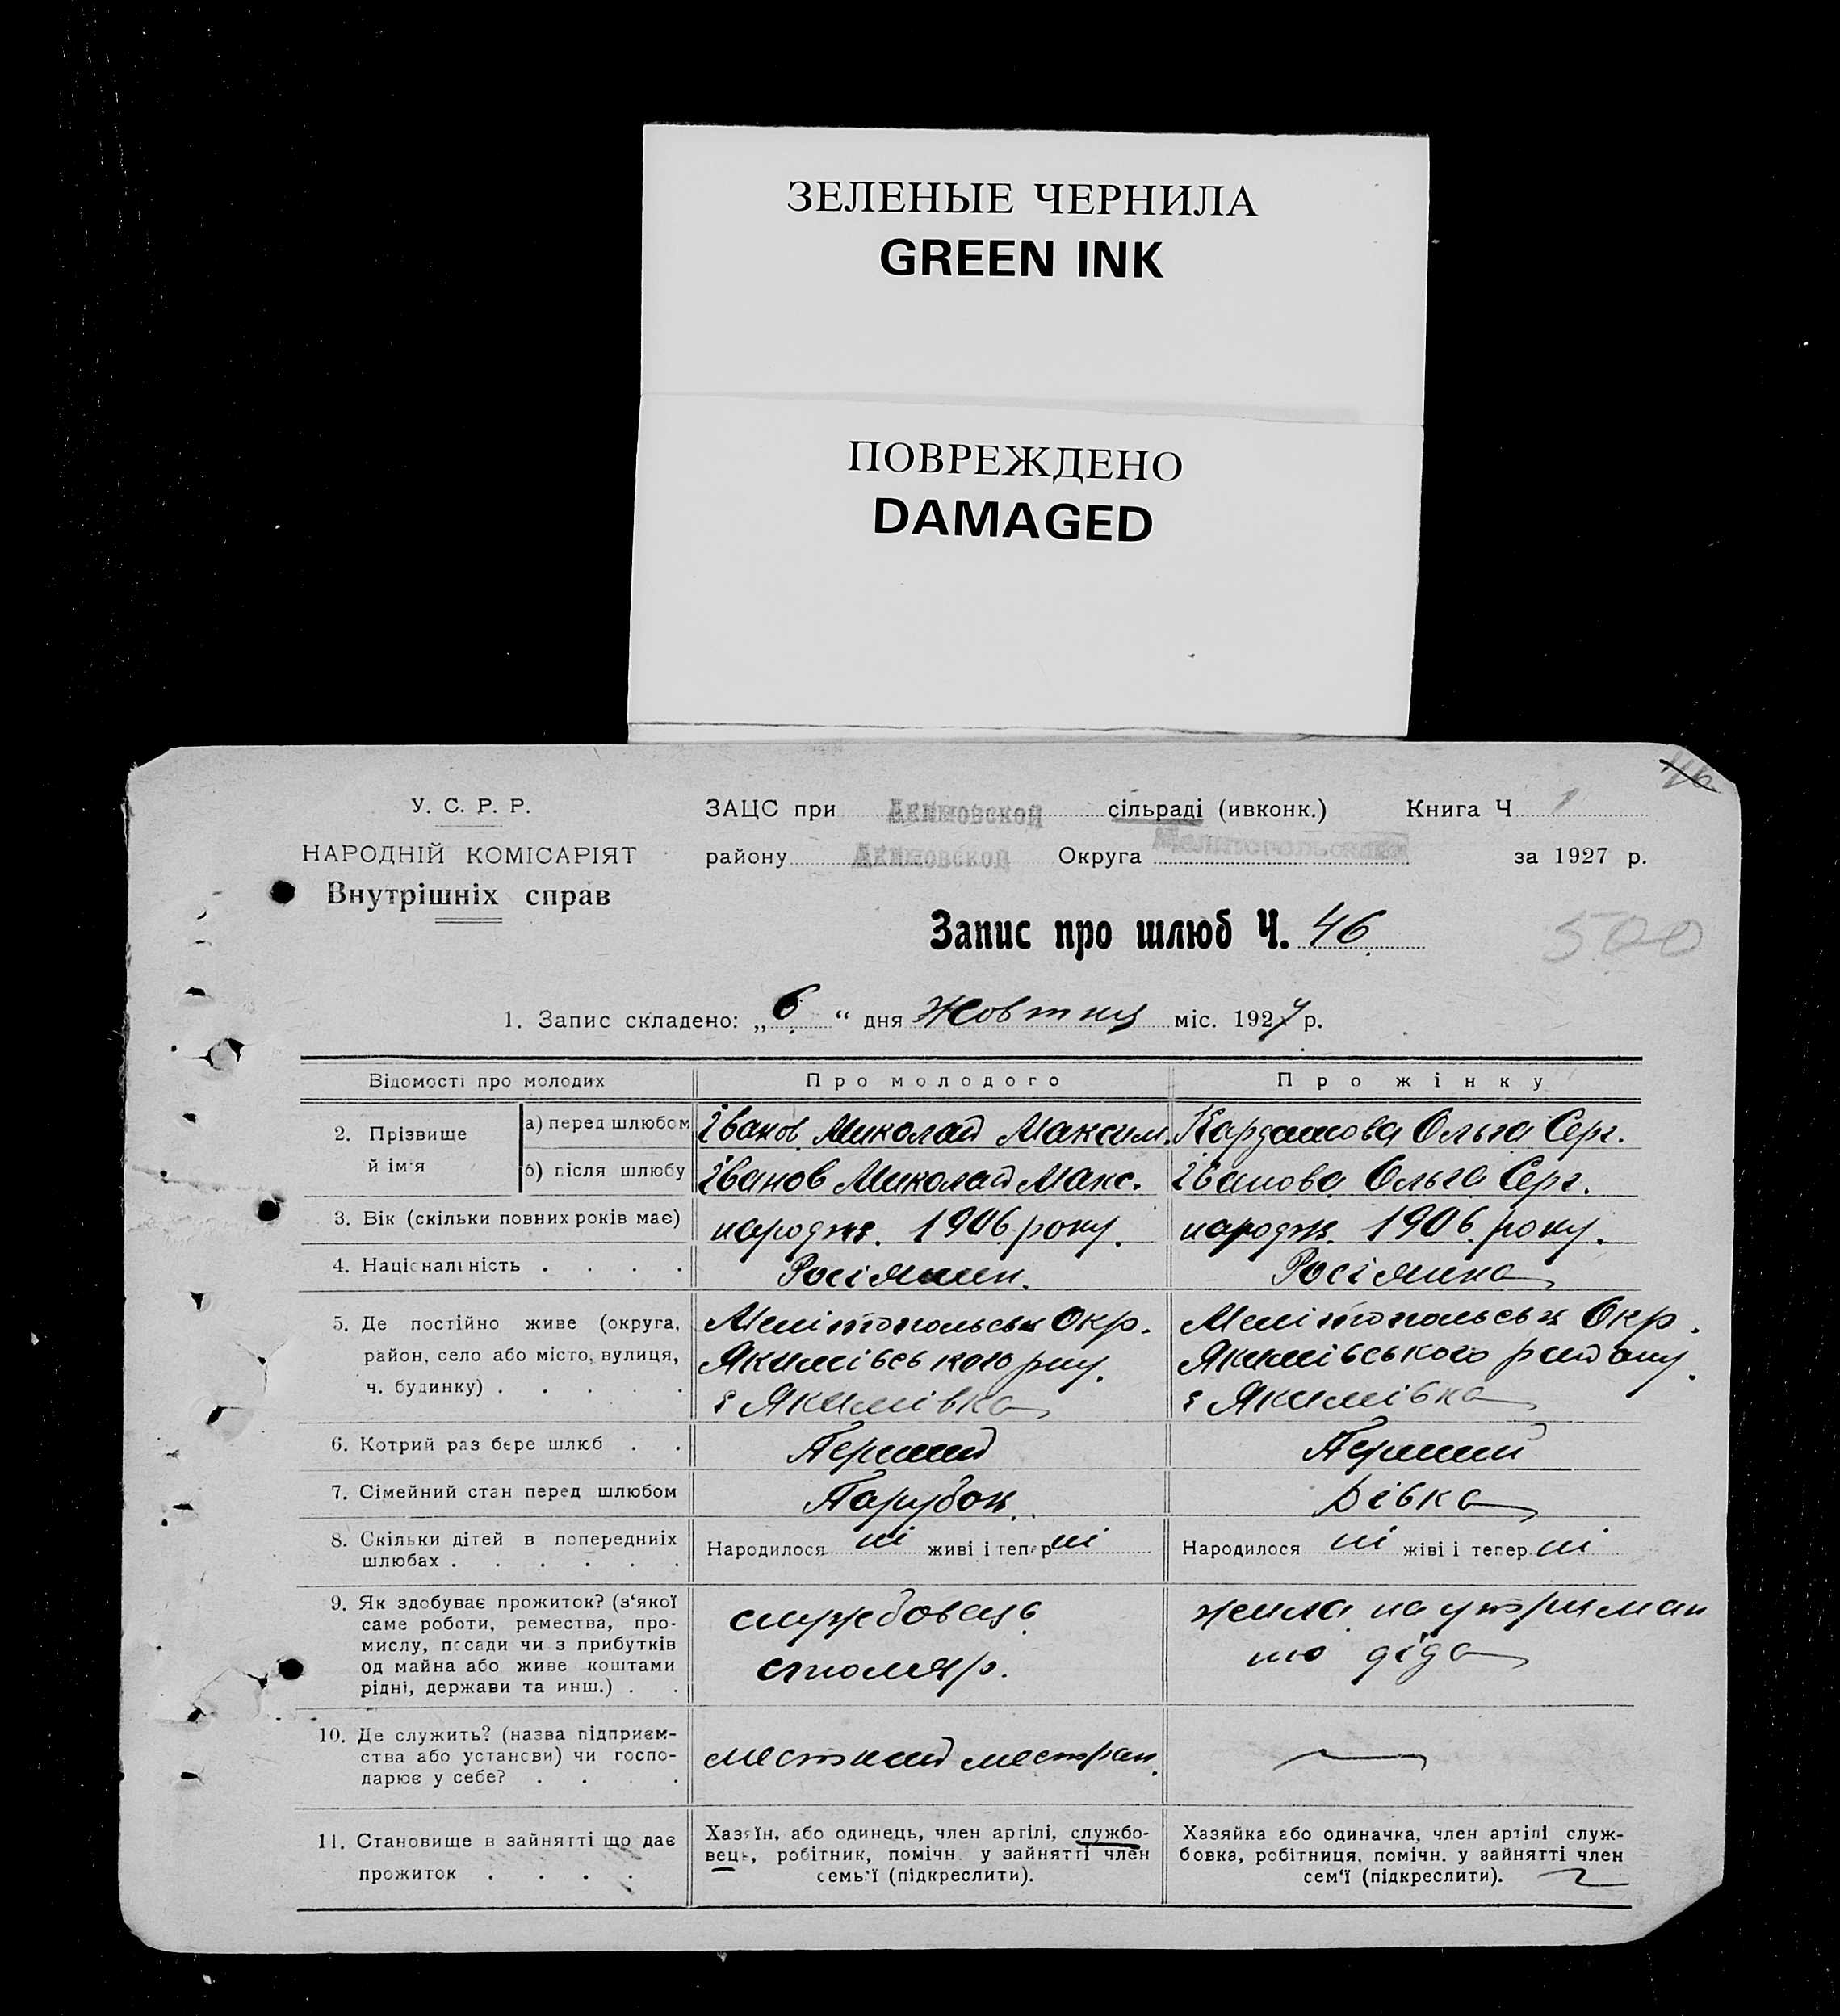 ЗЕЛЕНЫЕ ЧЕРНИЛА
GREEN INK
ПОВРЕЖДЕНО
DAMAGED
46
У. С. Р. Р.
НАРОДНІЙ КОМІСАРІЯТ
Внутрішніх справ
ЗАЦС при Акимовской сільраді (ивконк.) Книга Ч 1
району Акимовской Округа за 1927 р.
Запис про шлюб Ч. 46
500
1. Запис складено: „ 6 “ дня Жовтня міс. 1927 р.
Відомості про молодих Про молодого Про жінку
2. Прізвище й ім'я
а) перед шлюбом Іванов Миколай Максим. Кардашова Ольга Серг.
б) після шлюбу Іванов Миколай Макс. Іванова Ольга Серг.
3. Вік (скільки повних років має) народж. 1906 року. народж. 1906 року.
4. Національність . . . . Росіянин. Росіянка
5. Де постійно живе (округа, район, село або місто, вулиця, ч. будинку) . . . . .
Мелітопольськ Окр. Мелітопольськ Окр.
Якимівського рну. Якимівського району.
с Якимівка с Якимівка
6. Котрий раз бере шлюб . . Перший Перший
7. Сімейний стан перед шлюбом Парубок. Дівка
8. Скільки дітей в попередниіх шлюбах . . . . . .
Народилося ні живі і тепер ні Народилося ні жіві і тепер ні
9. Як здобуває прожиток? (з‘якої
саме роботи, ремества, про-
мислу, посади чи з прибутків
од майна або живе коштами
рідні, держави та инш.) . .
службовець жила на утриман
столяр. ню діда
10. Де служить? (назва підприєм-
ства або установи) чи госпо-
дарює у себе? . . . .
11. Становище в зайнятті що дає
прожиток . . . .
Хазяїн, або одинець, член артілі, службо-
вець, робітник, помічн. у зайнятті член
семь'ї (підкреслити).
Хазяйка або одиначка, член артілі служ-
бовка, робітниця, помічн. у зайнятті член
сем‘ї (підкреслити).